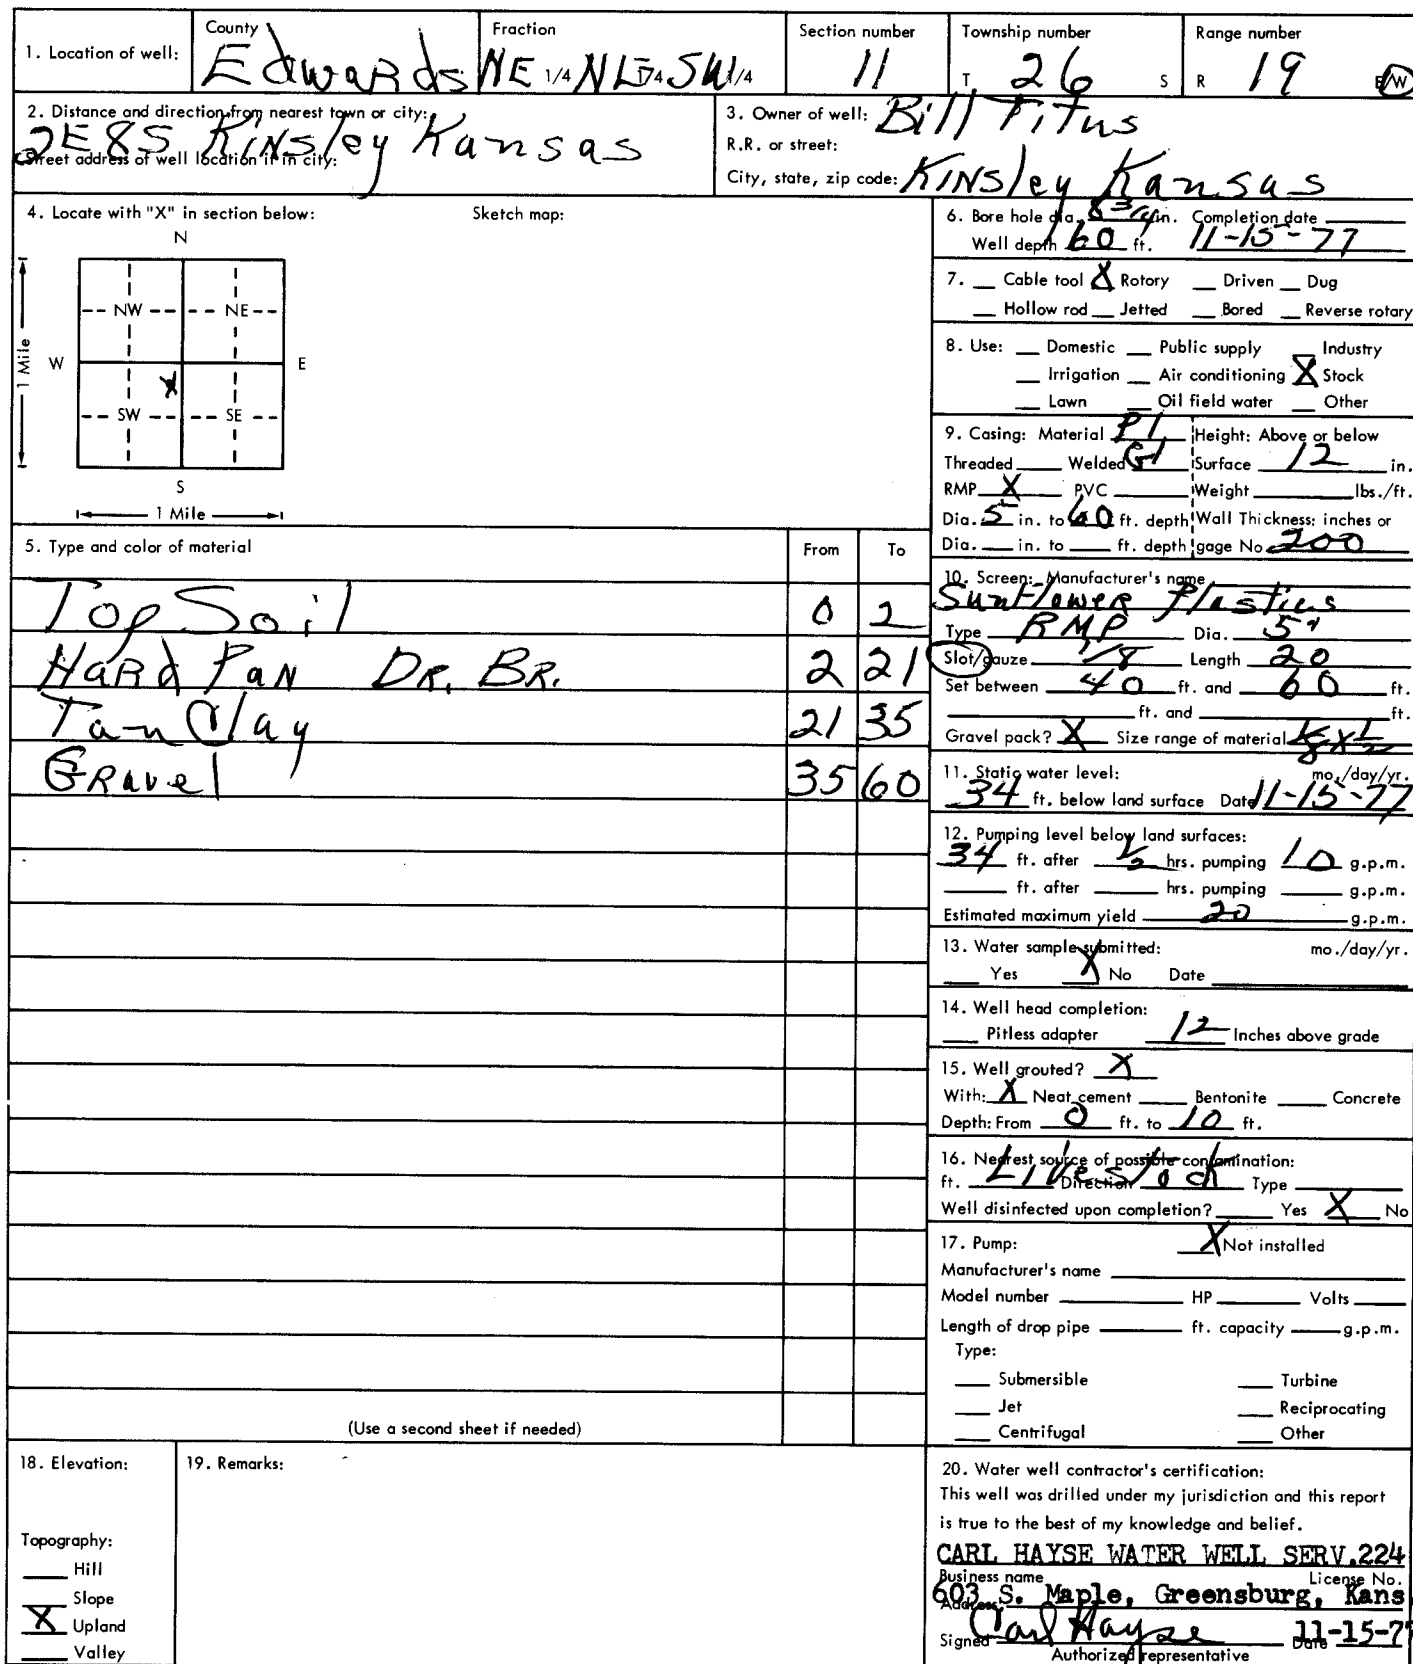 1. Location of well: County Edwards Fraction NE 1/4 NE 1/4 SW 1/4 Section number 11 Township number T 26 S Range number R 19 E/W
2. Distance and direction from nearest town or city: 2E 8S Kinsley Kansas
Street address of well location if in city:
3. Owner of well: Bill Titus
R.R. or street:
City, state, zip code: Kinsley Kansas
4. Locate with "X" in section below: Sketch map:
N
NW NE
W E
X
SW SE
S
1 Mile
1 Mile
5. Type and color of material From To
Top Soil 0 2
Hard Pan Dr. Br. 2 21
Tan Clay 21 35
Gravel 35 60
(Use a second sheet if needed)
6. Bore hole dia. 8 3/4 in. Completion date
Well depth 60 ft. 11-15-77
7. __ Cable tool X Rotory __ Driven __ Dug
__ Hollow rod __ Jetted __ Bored __ Reverse rotary
8. Use: __ Domestic __ Public supply __ Industry
__ Irrigation __ Air conditioning X Stock
__ Lawn __ Oil field water __ Other
9. Casing: Material Pl Height: Above or below
Threaded ___ Welded Gl Surface 12 in.
RMP X PVC ___ Weight ___ lbs./ft.
Dia. 5 in. to 60 ft. depth Wall Thickness: inches or
Dia. ___ in. to ___ ft. depth gage No 200
10. Screen: Manufacturer's name
Sunflower Plastics
Type RMP Dia. 5"
Slot/gauze 1/8 Length 20
Set between 40 ft. and 60 ft.
___ ft. and ___ ft.
Gravel pack? X Size range of material 1/8 x 1/2
11. Static water level: mo./day/yr.
34 ft. below land surface Date 11-15-77
12. Pumping level below land surfaces:
34 ft. after 1/2 hrs. pumping 10 g.p.m.
___ ft. after ___ hrs. pumping ___ g.p.m.
Estimated maximum yield 20 g.p.m.
13. Water sample submitted: mo./day/yr.
__ Yes X No Date
14. Well head completion:
__ Pitless adapter 12 Inches above grade
15. Well grouted? X
With: X Neat cement ___ Bentonite ___ Concrete
Depth: From 0 ft. to 10 ft.
16. Nearest source of possible contamination:
ft. Livestock Direction ___ Type ___
Well disinfected upon completion? ___ Yes X No
17. Pump: X Not installed
Manufacturer's name
Model number ___ HP ___ Volts ___
Length of drop pipe ___ ft. capacity ___ g.p.m.
Type:
__ Submersible __ Turbine
__ Jet __ Reciprocating
__ Centrifugal __ Other
18. Elevation:
Topography:
__ Hill
__ Slope
X Upland
__ Valley
19. Remarks:
20. Water well contractor's certification:
This well was drilled under my jurisdiction and this report
is true to the best of my knowledge and belief.
CARL HAYSE WATER WELL SERV. 224
Business name License No.
603 S. Maple, Greensburg, Kans
Address
Signed Carl Hayse Date 11-15-7
Authorized representative